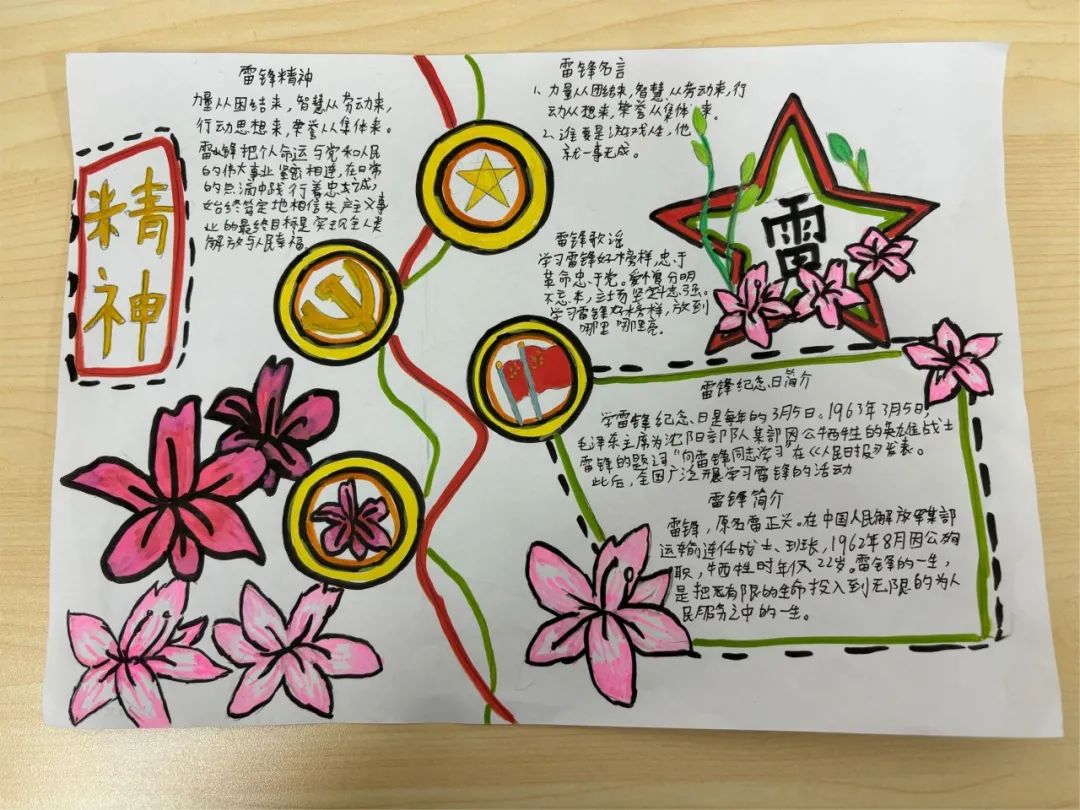 精
神
雷锋精神
力量从团结来，智慧从劳动来，
行动思想来，荣誉从集体来。
雷锋把个人命运与党和人民
的伟大事业紧密相连，在日常
的点滴中践行着忠诚，
始终笃定地相信共产主义事
业的最终目标是实现全人类
解放与人民幸福。
雷锋名言
1、力量从团结来，智慧从劳动来，行
动从想来，荣誉从集体来。
2、谁要是游戏人生，他
就一事无成。
雷锋歌谣
学习雷锋好榜样，忠于
革命忠于党。爱憎分明
不忘本，立场坚定斗志强。
学习雷锋好榜样，放到
哪里哪里亮。
雷
雷锋纪念日简介
学雷锋纪念日是每年的3月5日。1963年3月5日，
毛泽东主席为沈阳部队某部因公牺牲的英雄战士
雷锋的题词“向雷锋同志学习”在《人民日报》发表。
此后，全国广泛开展学习雷锋的活动
雷锋简介
雷锋，原名雷正兴。在中国人民解放军某部
运输连任战士、班张，1962年8月因公殉
职，牺牲时年仅22岁。雷锋的一生，
是把有限的生命投入到无限的为人
民服务之中的一生。